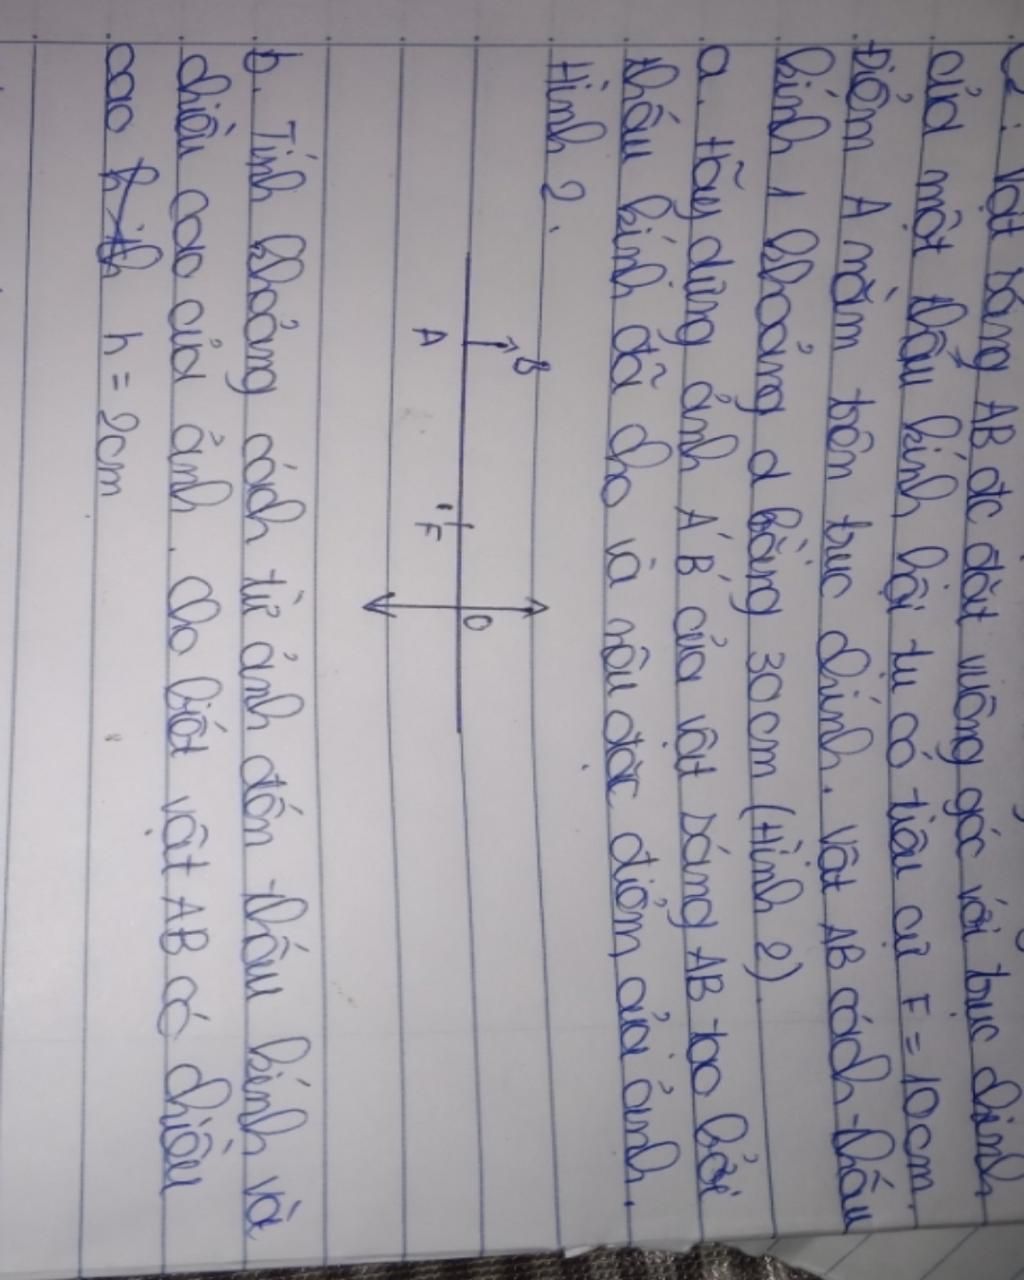 Vật sáng AB đc đặt vuông góc với trục chính
của một thấu kính hội tụ có tiêu cự F = 10cm.
Điểm A nằm trên trục chính. Vật AB cách thấu
kính 1 khoảng d bằng 30cm (Hình 2)
a. Hãy dựng ảnh A'B' của vật sáng AB tạo bởi
thấu kính đã cho và nêu đặc điểm của ảnh.
Hình 2.
B
A F O
b. Tính khoảng cách từ ảnh đến thấu kính và
chiều cao của ảnh. Cho biết vật AB có chiều
cao h = 2cm